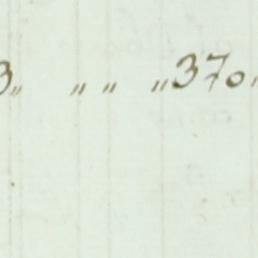 3„ „ „ „370„